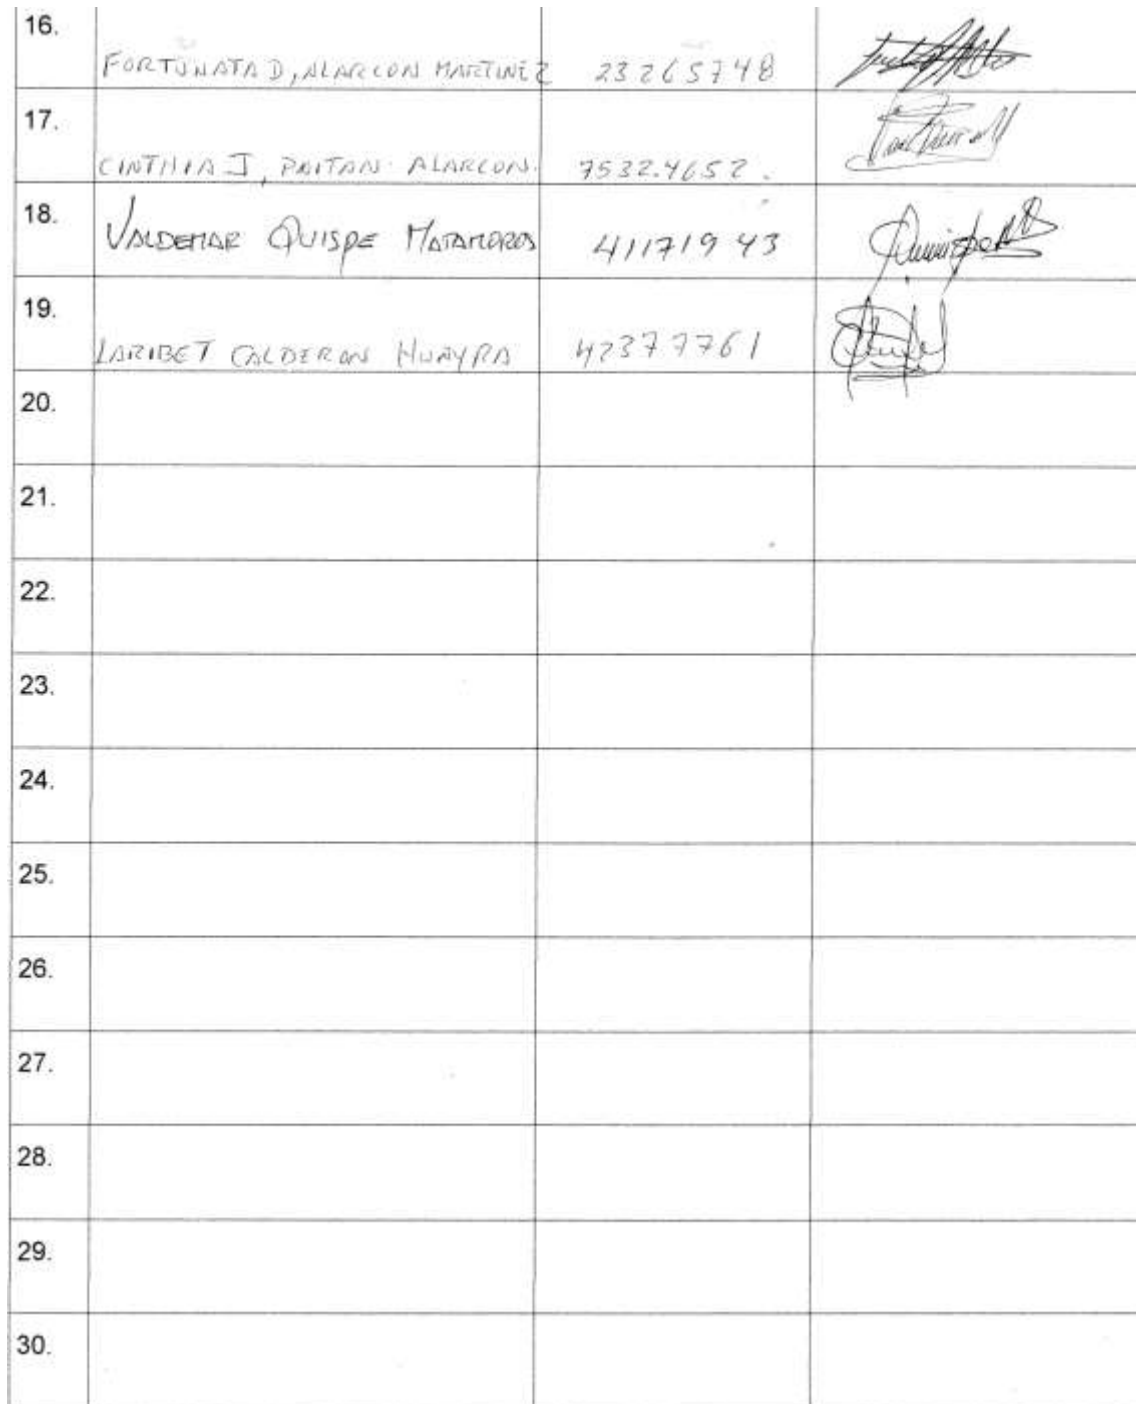 16.
FORTUNATA D, ALARCON MARTINEZ 23265748
17.
CINTHIA J, PAITAN ALARCON. 75324652.
18.
VALDEMAR QUISPE MATAMOROS 41171943
19.
LARIBET CALDERON HUAYRA 42377761
20.
21.
22.
23.
24.
25.
26.
27.
28.
29.
30.